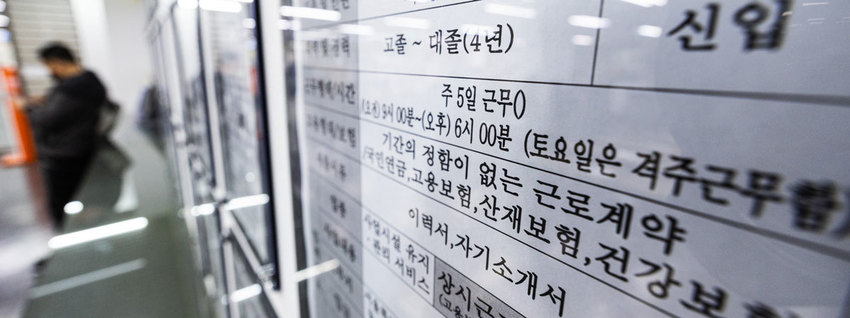 고졸 ~ 대졸(4년)
신입
주 5일 근무()
(오전) 9시 00분~(오후) 6시 00분 (토요일은 격주근무함)
기간의 정함이 없는 근로계약
/국민연금,고용보험,산재보험,건강보험
이력서,자기소개서
사업시설 유지
서비스
상시근
(고용